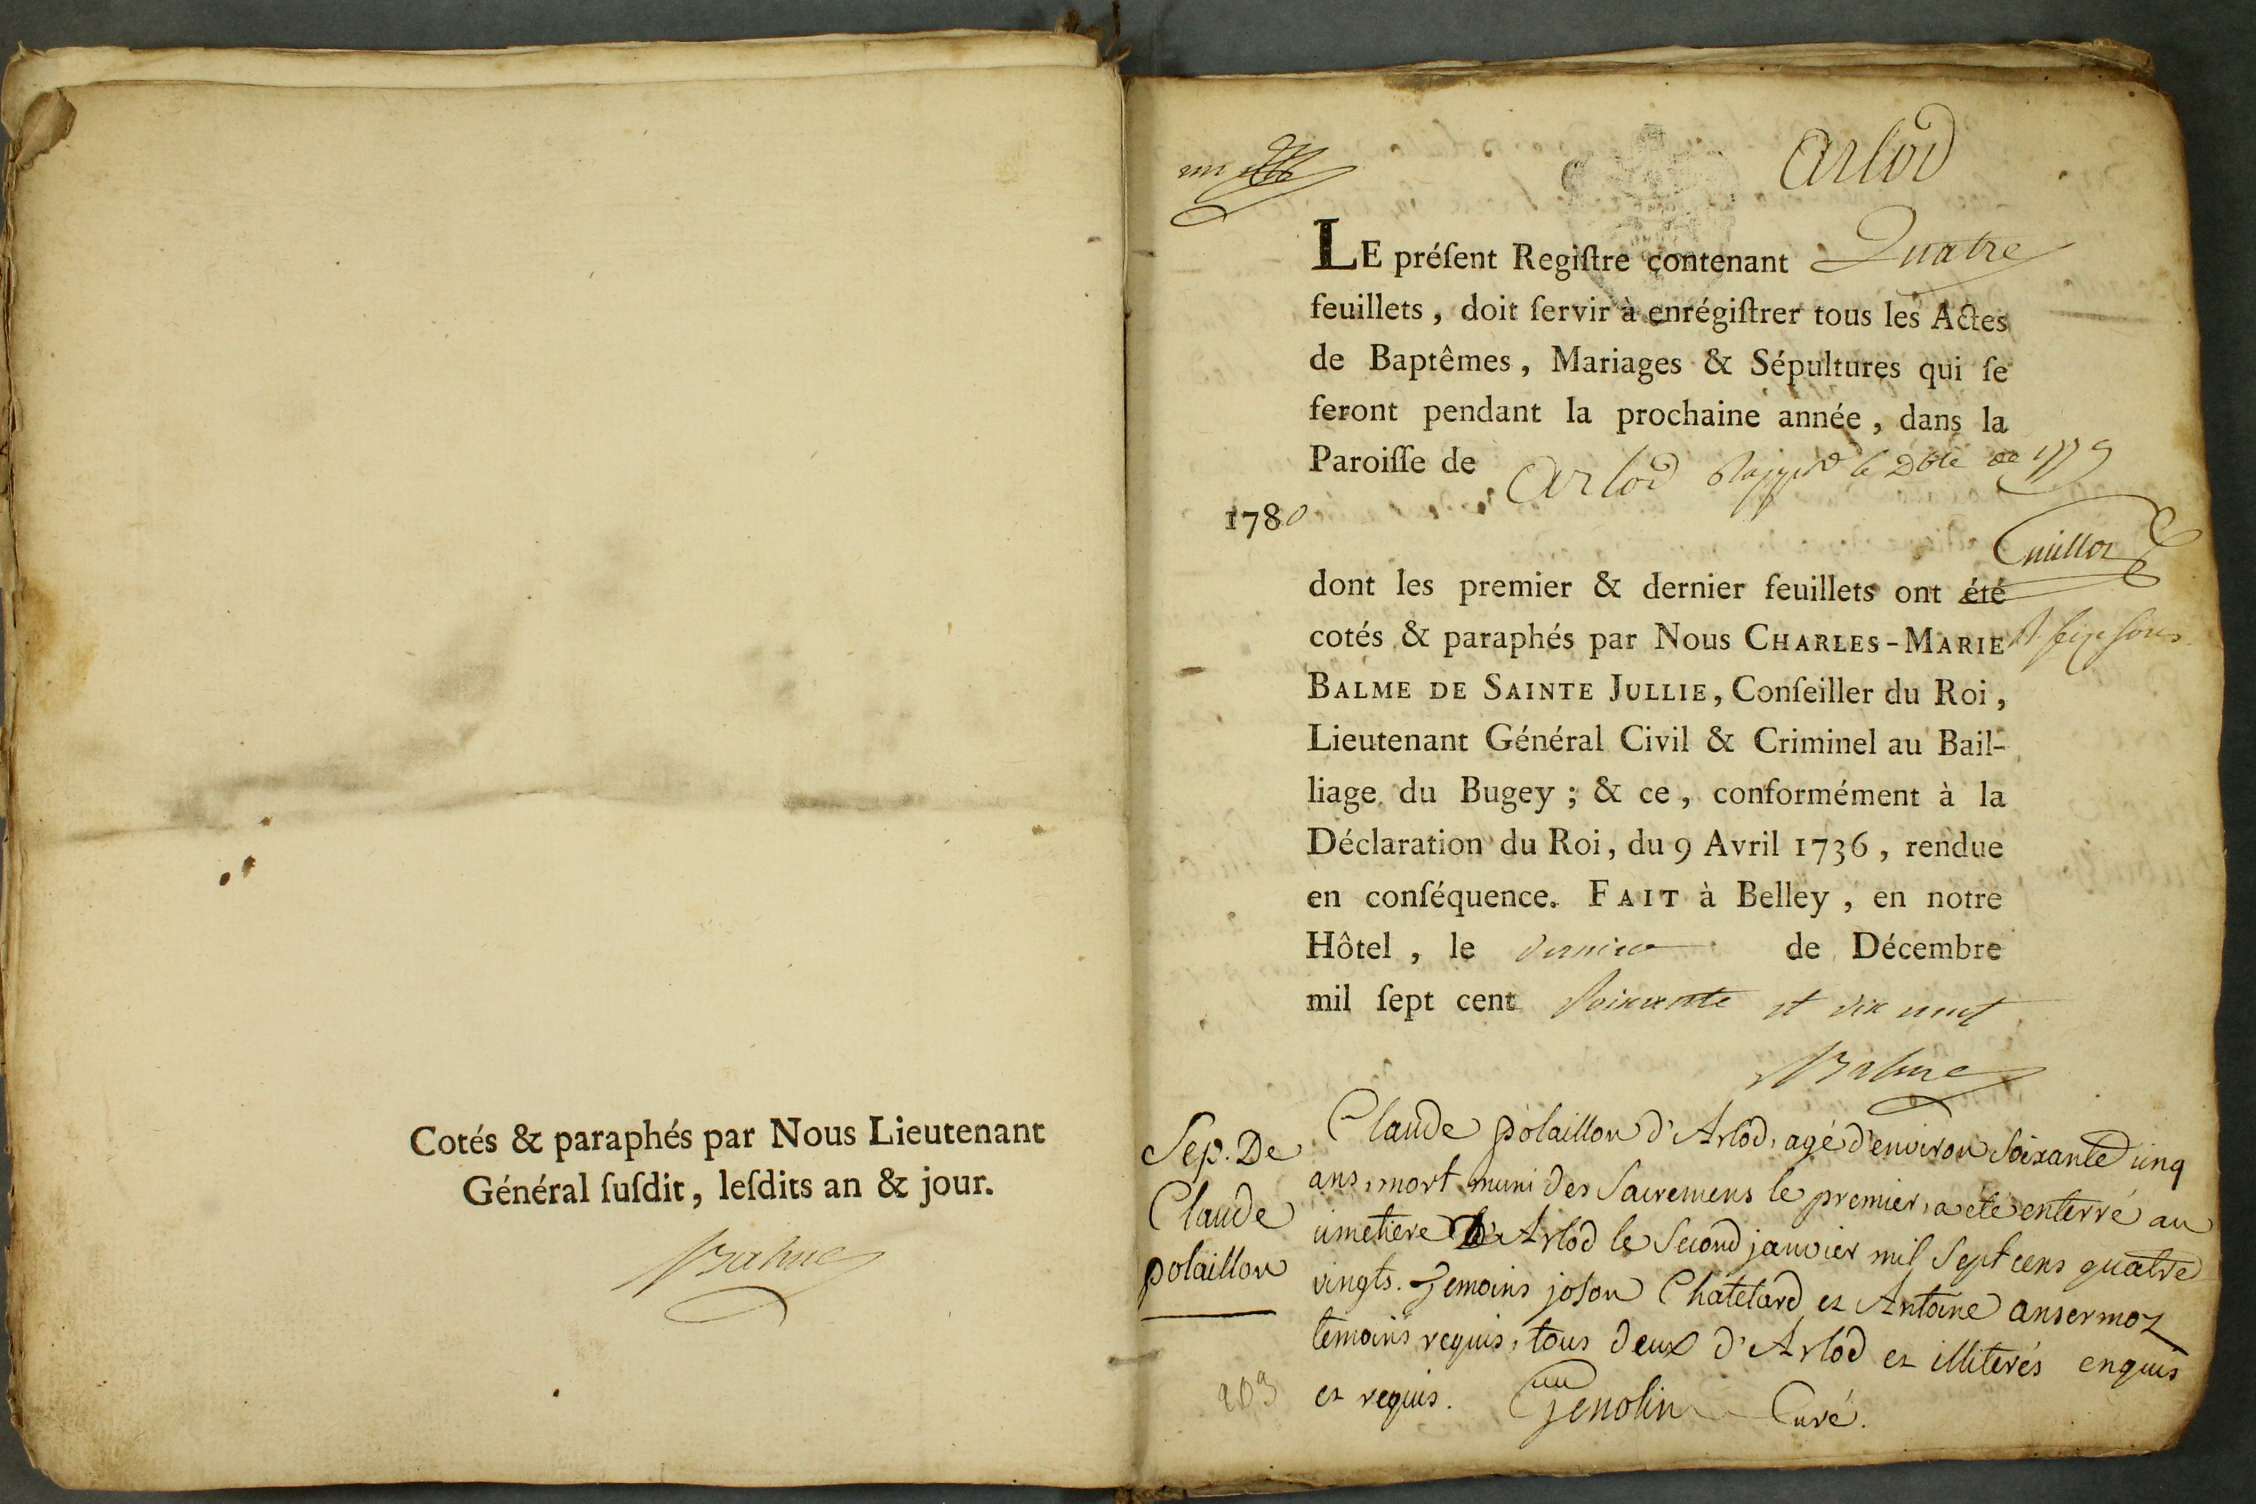 Cotés & paraphés par Nous Lieutenant
Général ſuſdit, leſdits an & jour.
Balme
un
Arlod
LE préſent Regiſtre contenant Quatre
feuillets, doit ſervir à enrégiſtrer tous les Actes
de Baptêmes, Mariages & Sépultures qui ſe
feront pendant la prochaine année, dans la
Paroiſſe de Arlod
1780
le Xbre 1779
Cuillor
dont les premier & dernier feuillets ont été
cotés & paraphés par Nous CHARLES-MARIE
BALME DE SAINTE JULLIE, Conſeiller du Roi,
Lieutenant Général Civil & Criminel au Bail-
liage du Bugey; & ce, conformément à la
Déclaration du Roi, du 9 Avril 1736, rendue
en conſéquence. FAIT à Belley, en notre
Hôtel, le dernier de Décembre
mil ſept cent soixante et dix neuf
Balme
Sep. De
Claude
polaillon
Claude polaillon d'Arlod, agé d'environ soixante cinq
ans, mort muni des Sacremens le premier, a été enterré au
cimetiere d'Arlod le Second janvier mil Sept cens quatre
vingts. Temoins joson Châtelard et Antoine ansermoz
temoins requis, tous deux d'Arlod et illiterés enquis
et requis. Genolin Curé.
203